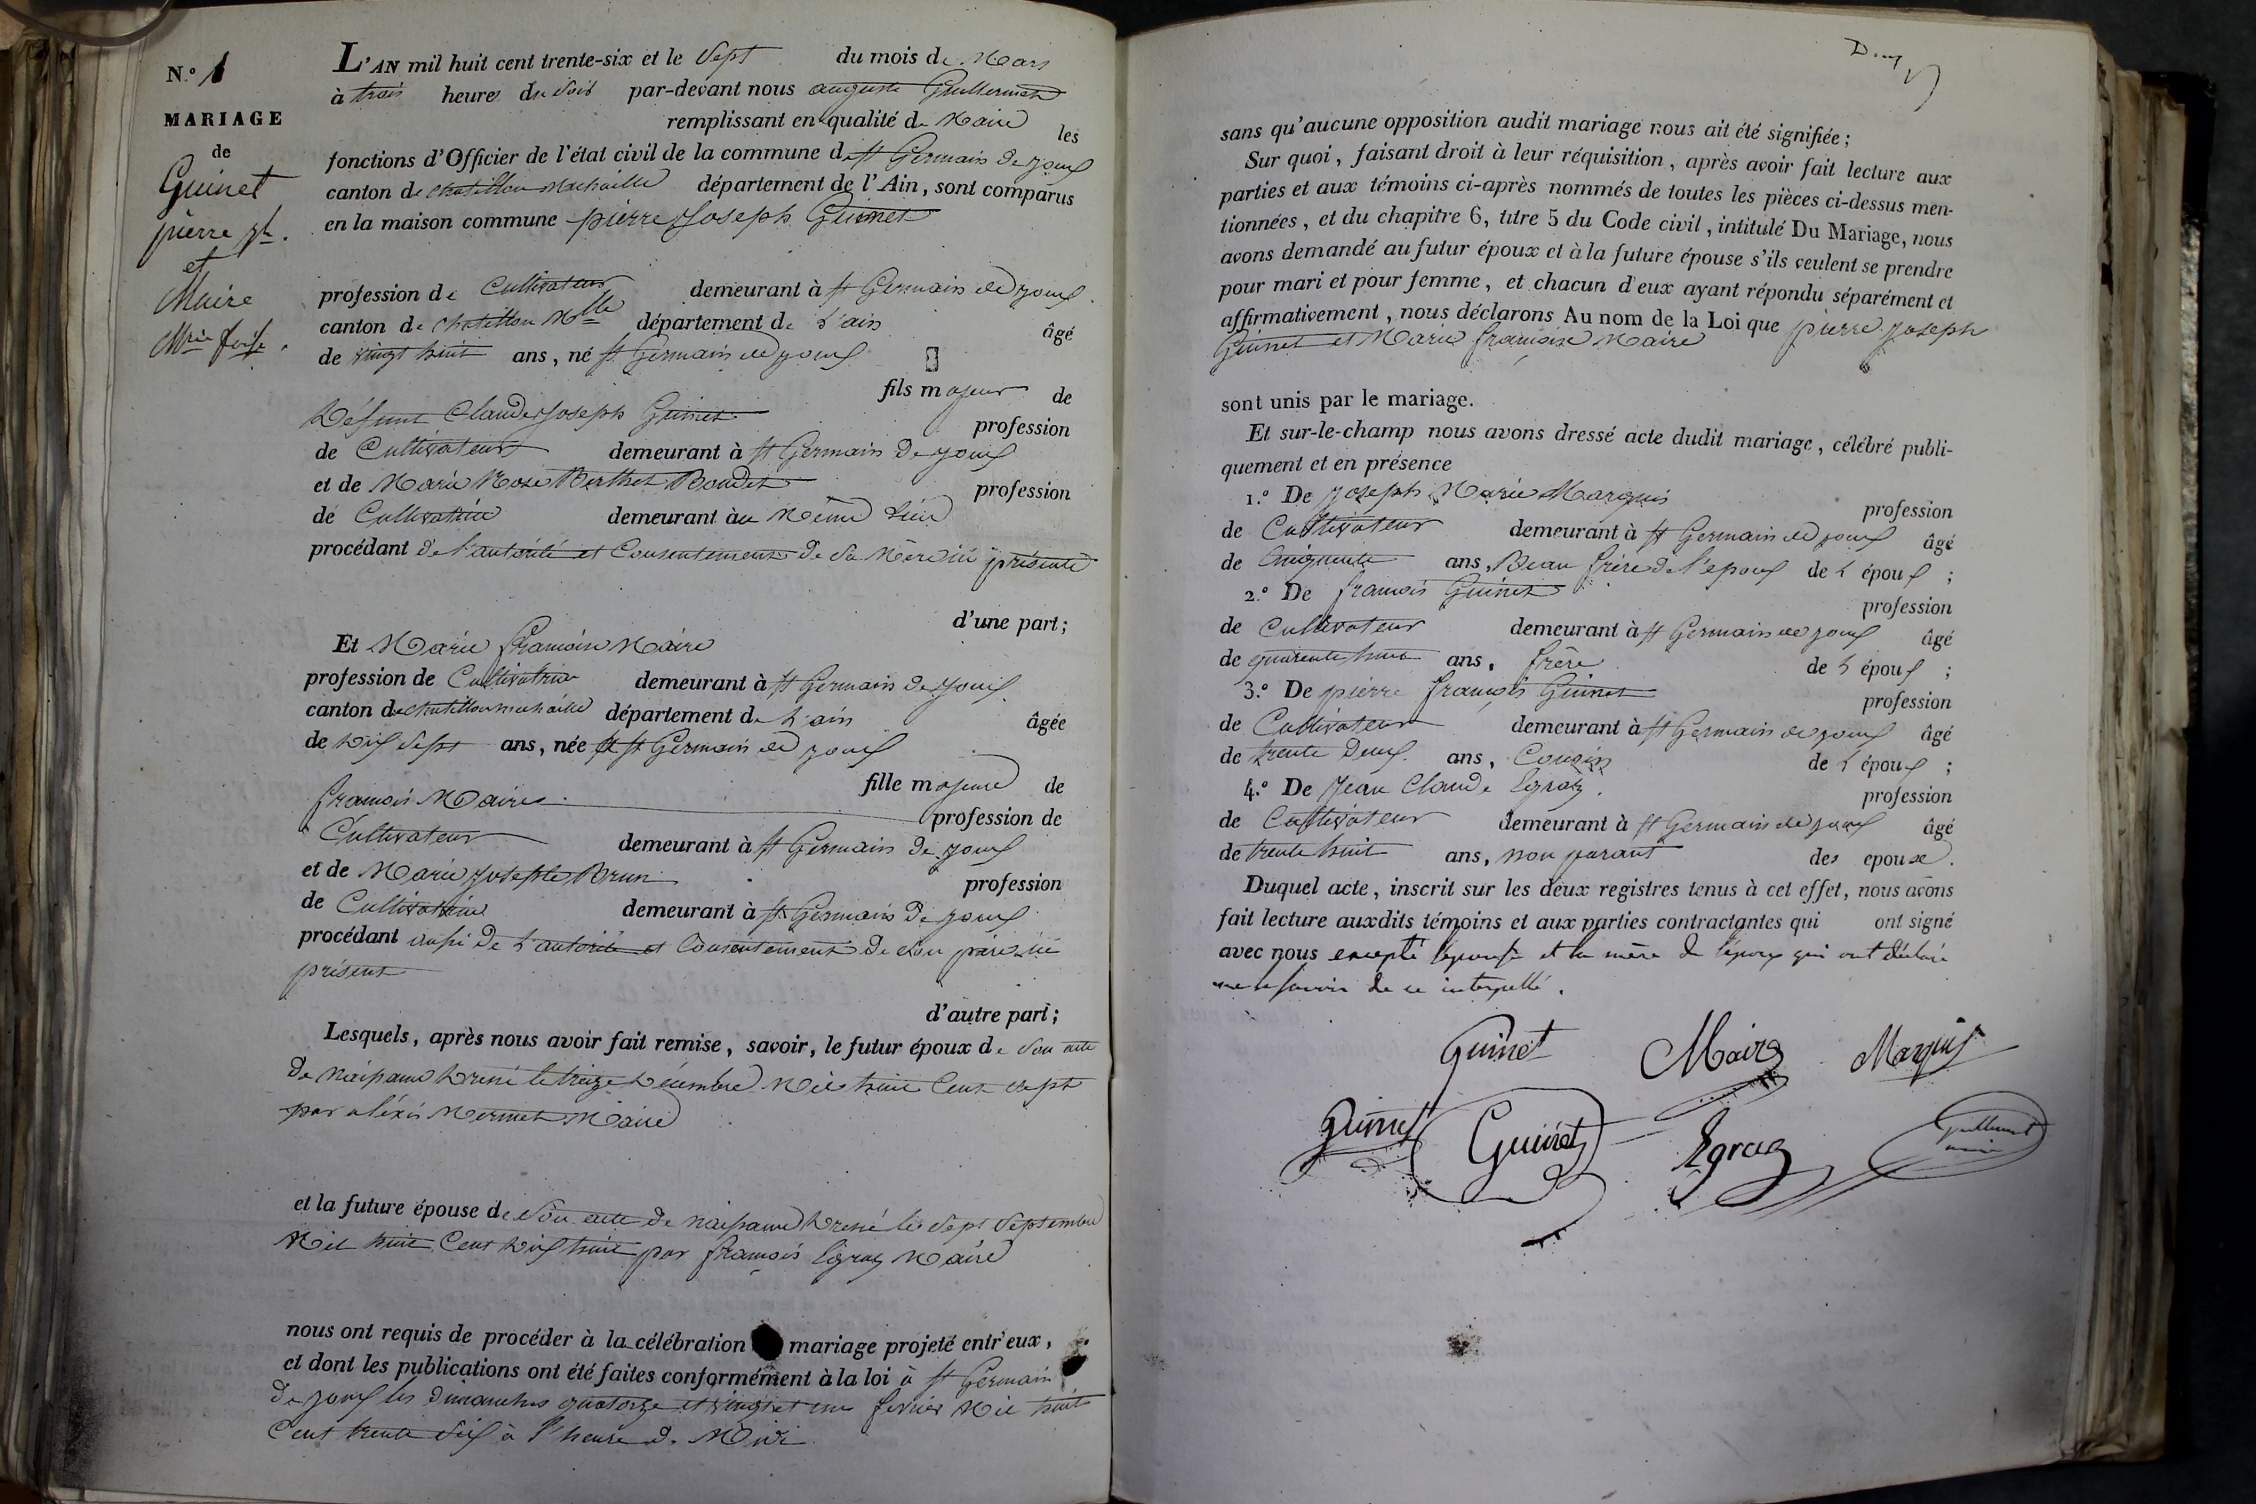 N.º 1
MARIAGE
de
Guinet
pierre jh.
et
Maire
Mrie foise.
L'AN mil huit cent trente-six et le Sept du mois de Mars
à trois heures du Soir par-devant nous auguste Guillermet
remplissant en qualité de Maire les
fonctions d'Officier de l'état civil de la commune de st Germain de joux
canton de chatillon Michaille département de l'Ain, sont comparus
en la maison commune pierre Joseph Guinet
profession de Cultivateur demeurant à st Germain de joux.
canton de chatillon Mlle département de l'ain âgé
de vingt huit ans, né st Germain de joux
fils majeur de
Défunt Claude Joseph Guinet profession
de Cultivateur demeurant à st Germain De joux
et de Marie Rose Berthet Bondet profession
de Cultivatrice demeurant au Même Lieu
procédant de l'autorité et Consentement de Sa Mère ici présente
d'une part;
Et Marie francoise Maire
profession de Cultivatrice demeurant à st Germain de Joux.
canton de chatillon michaille département de L'ain âgée
de Dix Sept ans, née à st Germain de joux
fille majeure de
francois Maire. profession de
Cultivateur demeurant à st Germain de joux
et de Marie josephte Brun profession
de Cultivatrice demeurant à st Germain de joux
procédant aussi de L'autorité et Consentement de son père ici
présent
d'autre part;
Lesquels, après nous avoir fait remise, savoir, le futur époux de Son acte
de naissance Dressé le treize Décembre Mil huit Cent Sept
par aléxis Mermet Maire
et la future épouse de Son acte de naissance Dressé le Sept Septembre
Mil huit Cent Dix huit par francois Egraz Maire
nous ont requis de procéder à la célébration mariage projeté entr'eux,
et dont les publications ont été faites conformément à la loi à st Germain
de joux les dimanches quatorze et vingt et un fevrier Mil huit
Cent trente Six à l'heure de Midi
sans qu'aucune opposition audit mariage nous ait été signifiée;
Sur quoi, faisant droit à leur réquisition, après avoir fait lecture aux
parties et aux témoins ci-après nommés de toutes les pièces ci-dessus men-
tionnées, et du chapitre 6, titre 5 du Code civil, intitulé Du Mariage, nous
avons demandé au futur époux et à la future épouse s'ils veulent se prendre
pour mari et pour femme, et chacun d'eux ayant répondu séparément et
affirmativement, nous déclarons Au nom de la Loi que pierre Joseph
Guinet et Marie francoise Maire
sont unis par le mariage.
Et sur-le-champ nous avons dressé acte dudit mariage, célébré publi-
quement et en présence
1.º De Joseph Marie Marquis profession
de Cultivateur demeurant à st Germain de joux âgé
de Cinquante ans, Beau frère de l'epoux de L époux ;
2.º De francois Guinet profession
de Cultivateur demeurant à st Germain de joux âgé
de quarente huit ans, frère de L époux ;
3.º De pierre françois Guinet profession
de Cultivateur demeurant à st Germain de joux âgé
de trente Deux. ans, Cousin de L époux ;
4.º De Jean Claude Egraz. profession
de Cultivateur demeurant à st Germain de joux âgé
de trente huit ans, non parant des epouse.
Duquel acte, inscrit sur les deux registres tenus à cet effet, nous avons
fait lecture auxdits témoins et aux parties contractantes qui ont signé
avec nous excepté l'épouse et la mère de l'époux qui ont déclaré
ne le savoir de ce interpellé.
Guinet Maire Marquis
Guinet Guinet Egraz Guillermet
maire